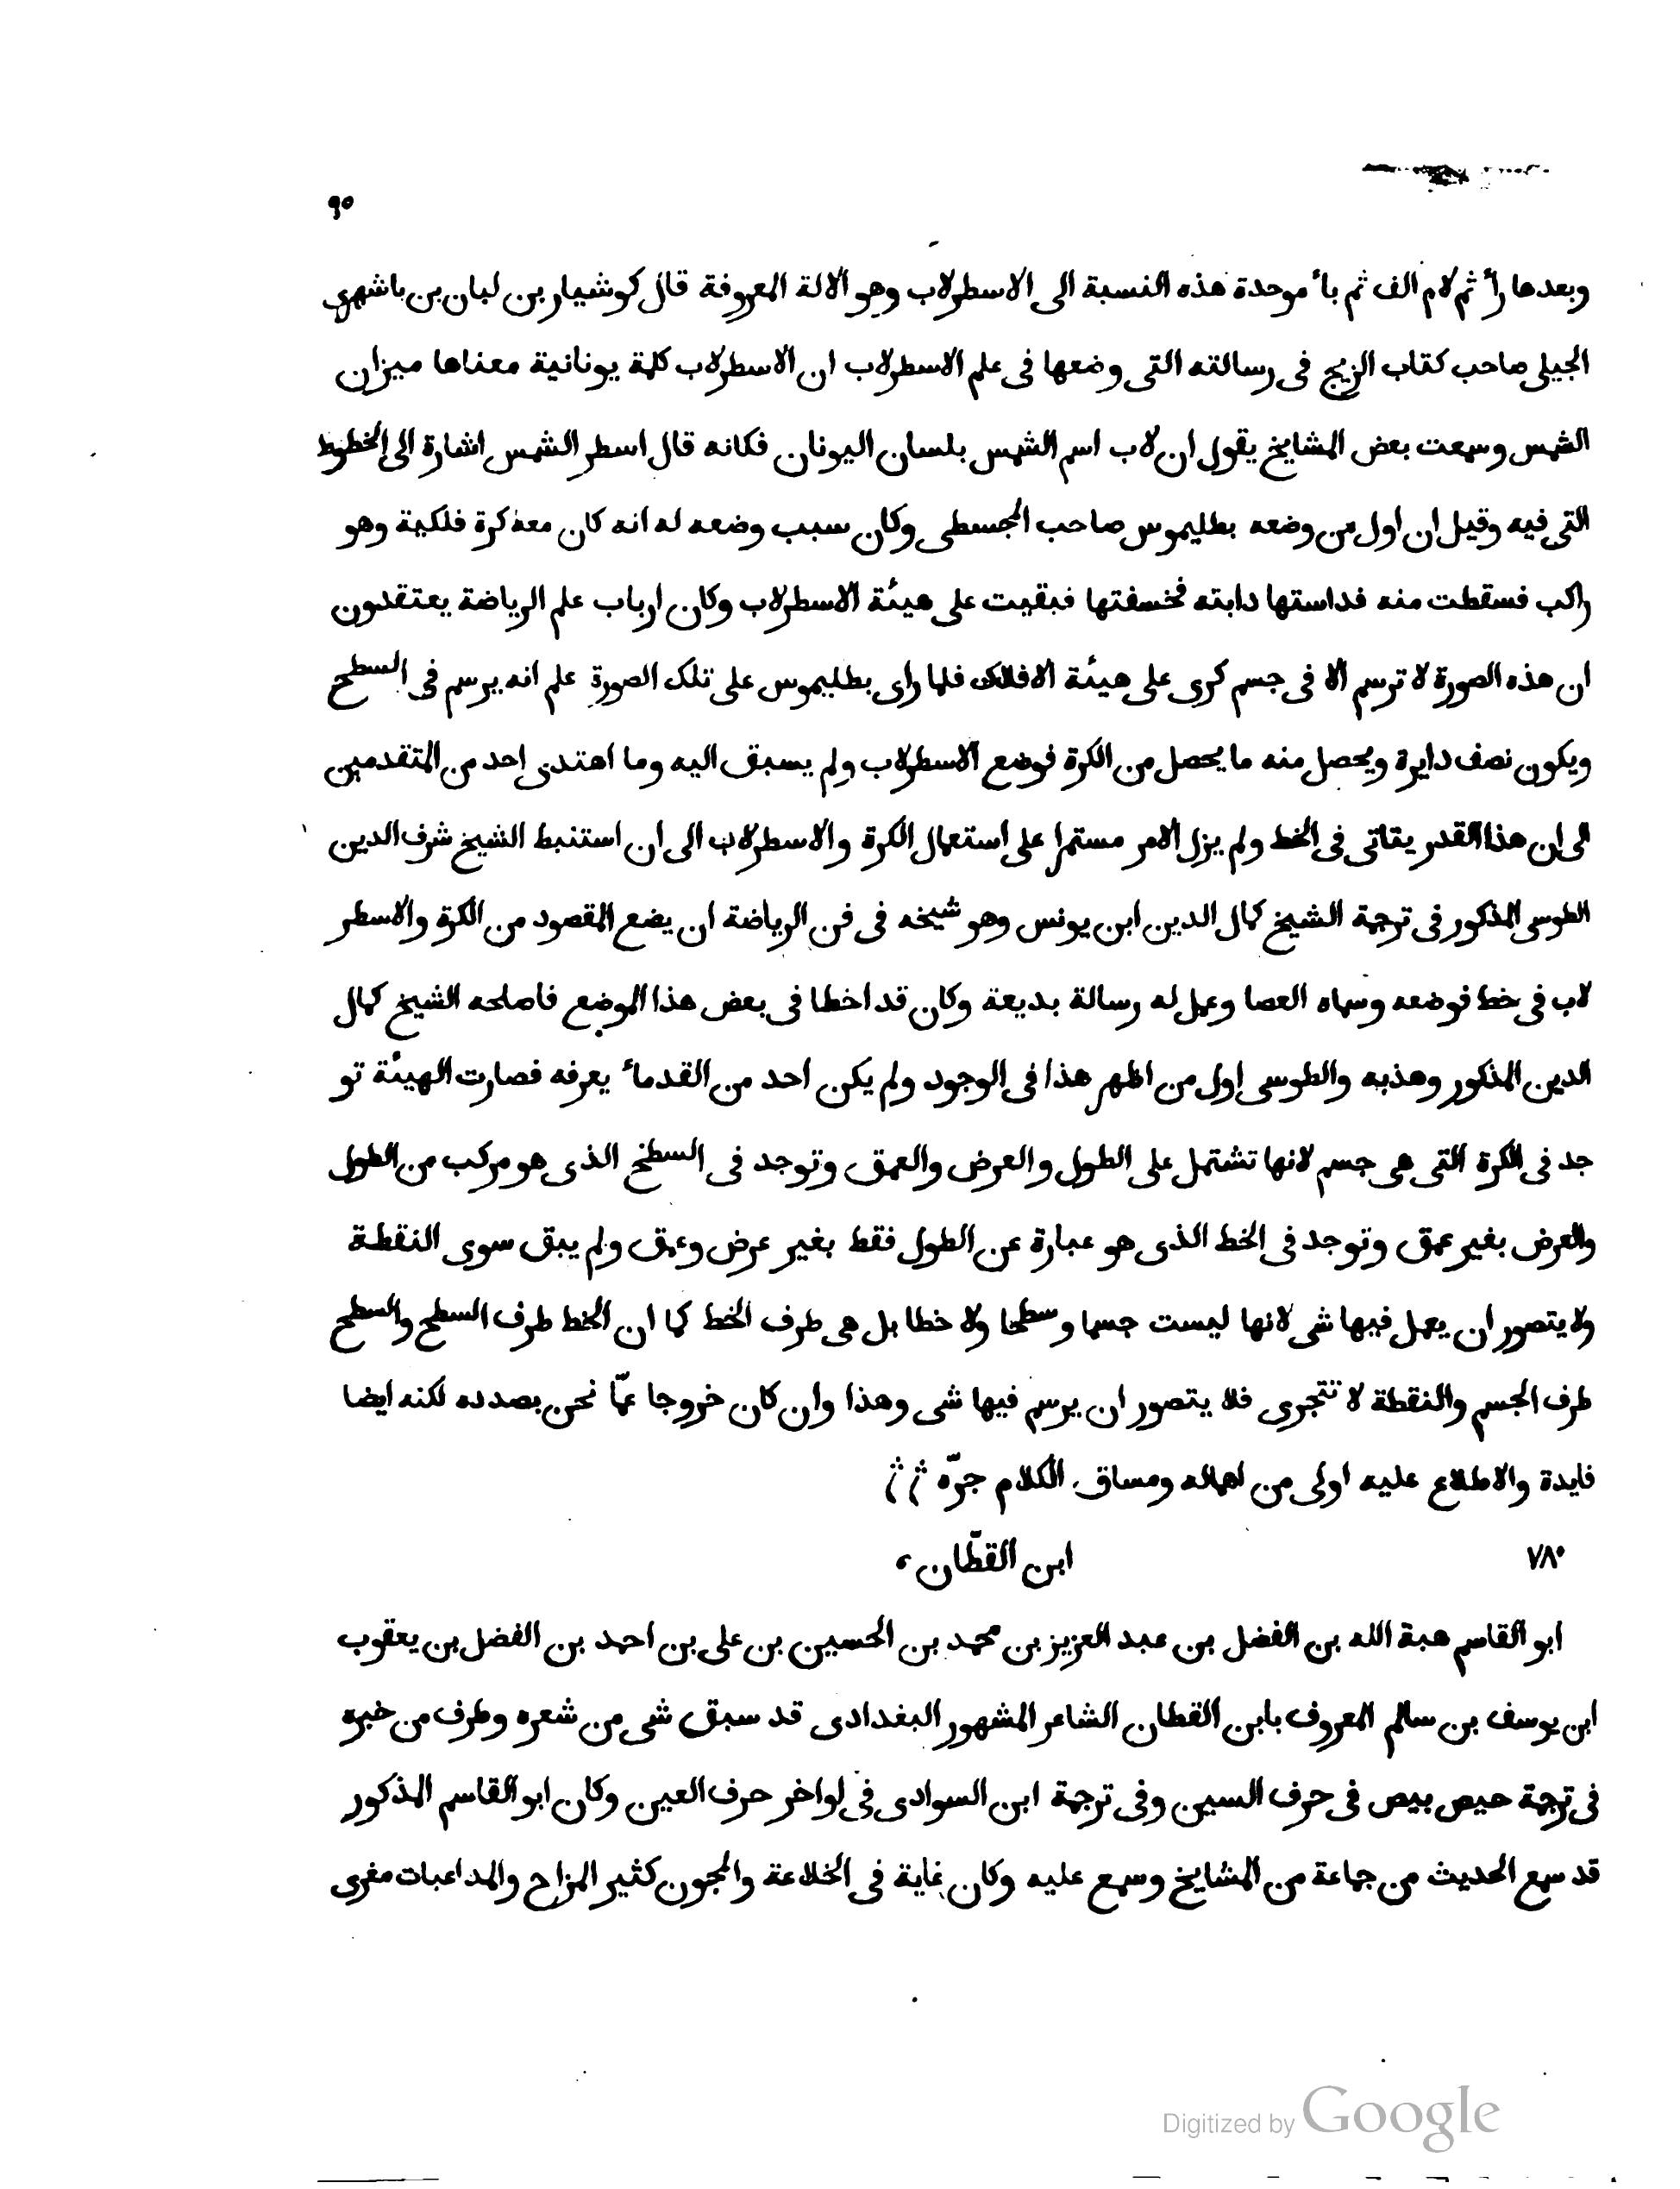 ٩٥
وبعدها رأ ثم لام الف ثم بأ موحدة هذه النسبة الى الاسطرلاب وهو الالة المعروفة قال كوشيار بن لبان بن باشهرى
الجيلى صاحب كتاب الزيج فى رسالته التى وضعها فى علم الاسطرلاب ان الاسطرلاب كلمة يونانية معناها ميزان
الشمس وسمعت بعض المشايخ يقول ان لاب اسم الشمس بلسان اليونان فكانه قال اسطر الشمس اشارة الى الخطوط
التى فيه وقيل ان اول من وضعه بطليموس صاحب المجسطى وكان سبب وضعه له انه كان معه كرة فلكية وهو
راكب فسقطت منه فداستها دابته فخسفتها فبقيت على هيئة الاسطرلاب وكان ارباب علم الرياضة يعتقدون
ان هذه الصورة لا ترسم الا فى جسم كرى على هيئة الافلاك فلما راى بطليموس على تلك الصورة علم انه يرسم فى السطح
ويكون نصف دايرة ويحصل منه ما يحصل من الكرة فوضع الاسطرلاب ولم يسبق اليه وما اهتدى احد من المتقدمين
الى ان هذا القدر يتاتى فى الخط ولم يزل الامر مستمرا على استعمال الكرة والاسطرلاب الى ان استنبط الشيخ شرف الدين
الطوسى المذكور فى ترجمة الشيخ كمال الدين ابن يونس وهو شيخه فى فن الرياضة ان يضع المقصود من الكرة والاسطر
لاب فى خط فوضعه وسماه العصا وعمل له رسالة بديعة وكان قد اخطا فى بعض هذا الموضع فاصلحه الشيخ كمال
الدين المذكور وهذبه والطوسى اول من اظهر هذا فى الوجود ولم يكن احد من القدمأ يعرفه فصارت الهيئة تو
جد فى الكرة التى هى جسم لانها تشتمل على الطول والعرض والعمق وتوجد فى السطح الذى هو مركب من الطول
والعرض بغير عمق وتوجد فى الخط الذى هو عبارة عن الطول فقط بغير عرض وعمق ولم يبق سوى النقطة
ولا يتصور ان يعمل فيها شى لانها ليست جسما وسطحا ولا خطا بل هى طرف الخط كما ان الخط طرف السطح والسطح
طرف الجسم والنقطة لا تتجزى فلا يتصور ان يرسم فيها شى وهذا وان كان خروجا عمّا نحن بصدده لكنه ايضا
فايدة والاطلاع عليه اولى من اهماله ومساق الكلام جرّه
٧٨٠ ابن القطّان
ابو القاسم هبة الله بن الفضل بن عبد العزيز بن محمد بن الحسين بن على بن احمد بن الفضل بن يعقوب
ابن يوسف بن سالم المعروف بابن القطان الشاعر المشهور البغدادى قد سبق شى من شعره وطرف من خبره
فى ترجمة حيص بيص فى حرف السين وفى ترجمة ابن السوادى فى اواخر حرف العين وكان ابو القاسم المذكور
قد سمع الحديث من جماعة من المشايخ وسمع عليه وكان غاية فى الخلاعة والمجون كثير المزاح والمداعبات مغرى
Digitized by Google